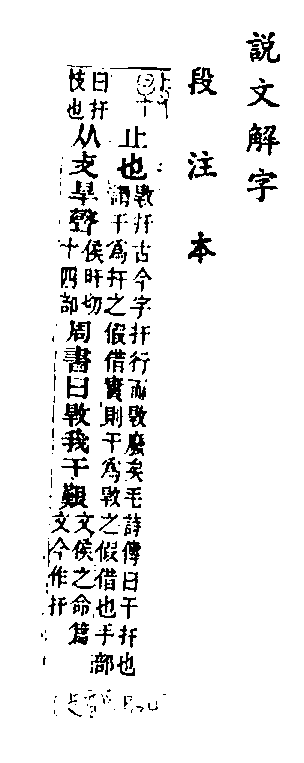 說文解字
段注本
止也㪋扞古今字扞行而㪋廢矣毛詩傳曰干扞也謂干為扞之假借實則干為㪋之假借也手部
曰扞忮也从攴旱聲侯旰切十四部周書曰㪋我于艱文侯之命篇文今作扞